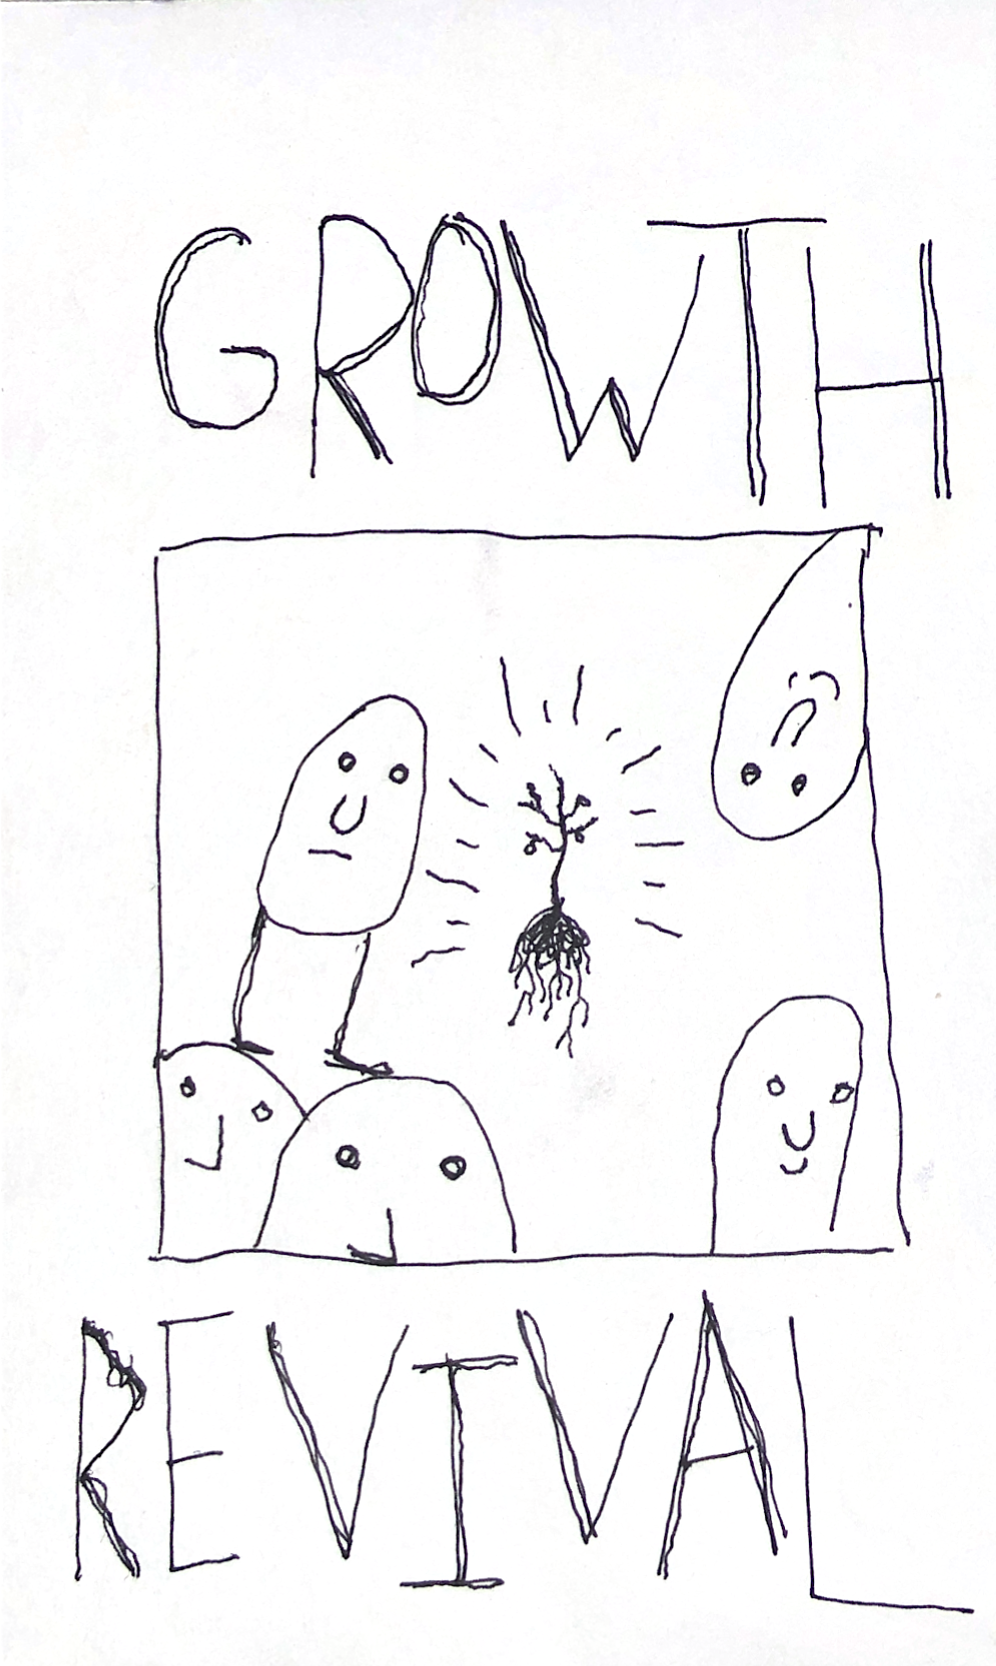 GROWTH
REVIVAL